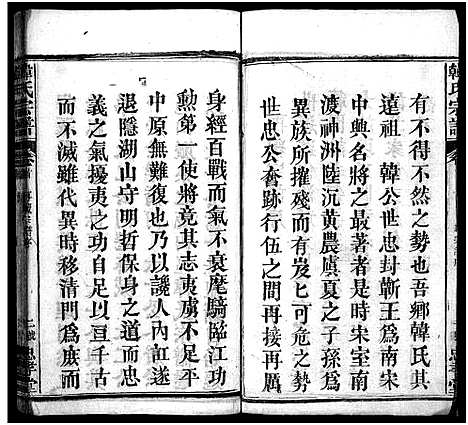 韓氏宗譜
有不得不然之勢也吾鄉韓氏其
遠祖 韓公世忠封蘄王爲南宋
中興名將之最著者是時宋室南
渡神洲陸沉黃農虞夏之子孫爲
異族所摧殘而有岌匕可危之勢
世忠公奮跡行伍之間
身經百戰而氣不衰麾騎臨江功
勲第一使將竟其志夷虜不足平
中原無難復也乃以讒人內訌遂
退隱湖山守明哲保身之道而忠
義之氣攘夷之功自足以亘千古
而不滅雖代異時移清門爲庶而
韓氏宗譜